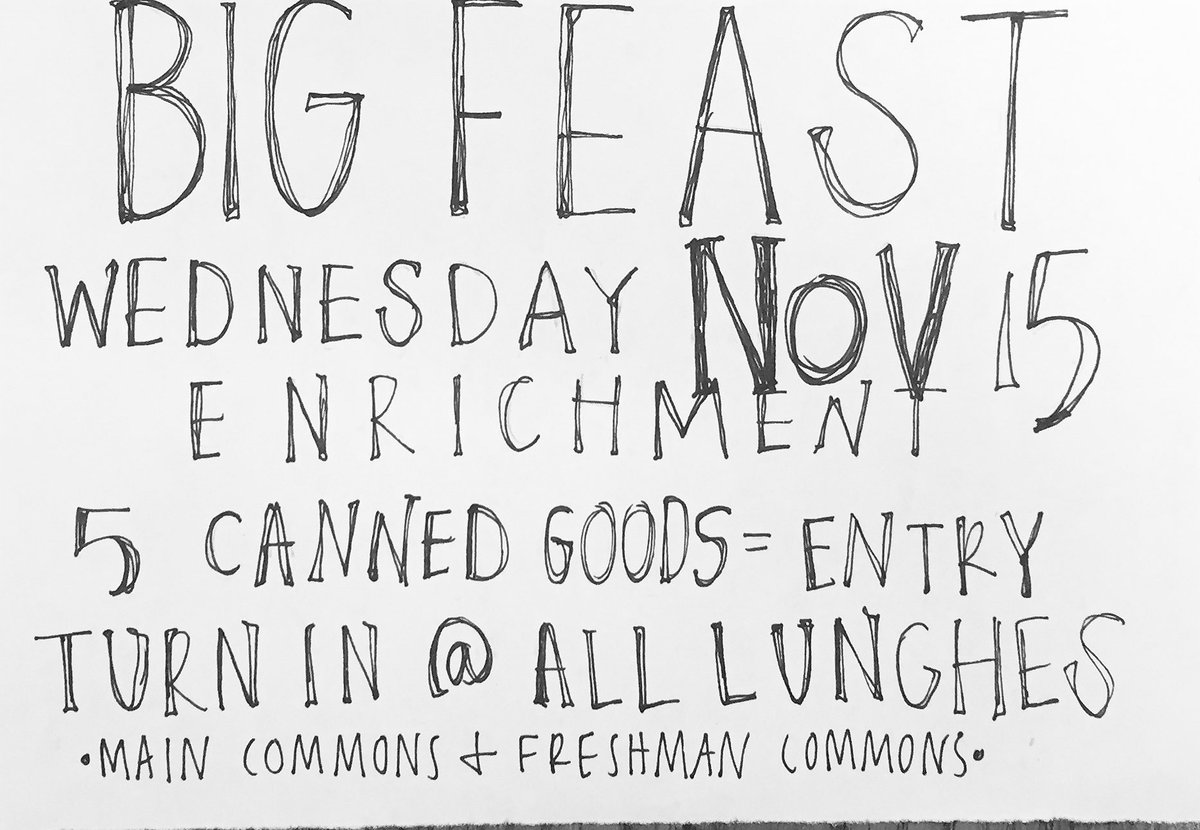 BIG FEAST
WEDNESDAY NOV 15
ENRICHMENT
5 CANNED GOODS = ENTRY
TURN IN @ ALL LUNGHES
•MAIN COMMONS + FRESHMAN COMMONS•